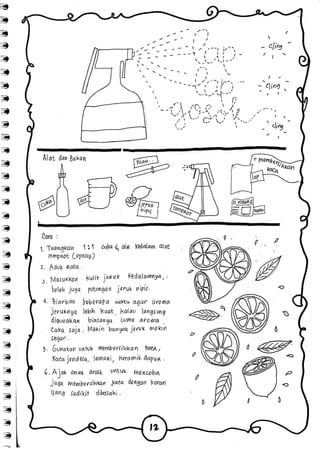 lap
cling
lap
cling
gosok
cling
Alat dan Bahan
Pisau
Cuka
air
jeruk
nipis
alat
semprot
membersihkan
kaca
lap
koran
Cara :
1. Tuangkan 1:1 cuka & air kedalam alat
semprot (spray)
2. Aduk Rata.
3. Masukkan kulit jeruk kedalamnya,
boleh juga potongan jeruk nipis.
4. Biarkan beberapa waktu agar aroma
jeruknya lebih kuat, kalau langsung
digunakan biasanya cuma aroma
cuka saja. Makin banyak jeruk makin
segar.
5. Gunakan untuk membersihkan kaca,
kaca jendela, lemari, keramik dapur.
6. Ajak anak anak untuk mencoba
juga membersihkan kaca dengan koran
yang sedikit dibasahi.
12